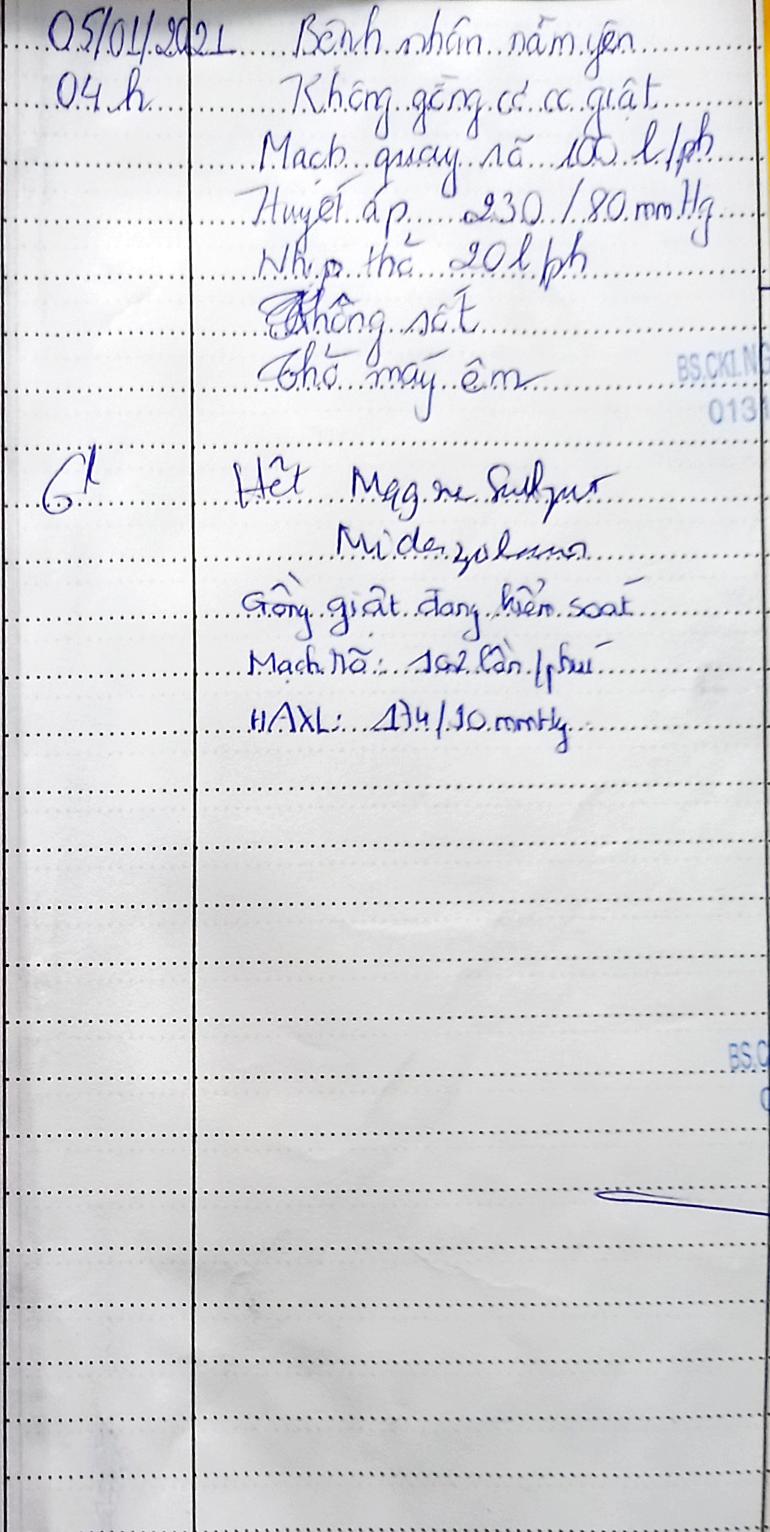 05/01/2021 Bệnh nhân nằm yên
04h Không gồng cơ co giật
Mạch quay rõ 100 l/ph
Huyết áp 230/80 mmHg
Nhịp thở 20 l/ph
Không sốt
Thở máy êm
BS.CKI.NG
0131
6h Hết Magne Sulfat
Midazolam
Gồng giật đang kiểm soát
Mạch rõ: 102 lần/phút
HAXL: 174/90 mmHg
BS.C